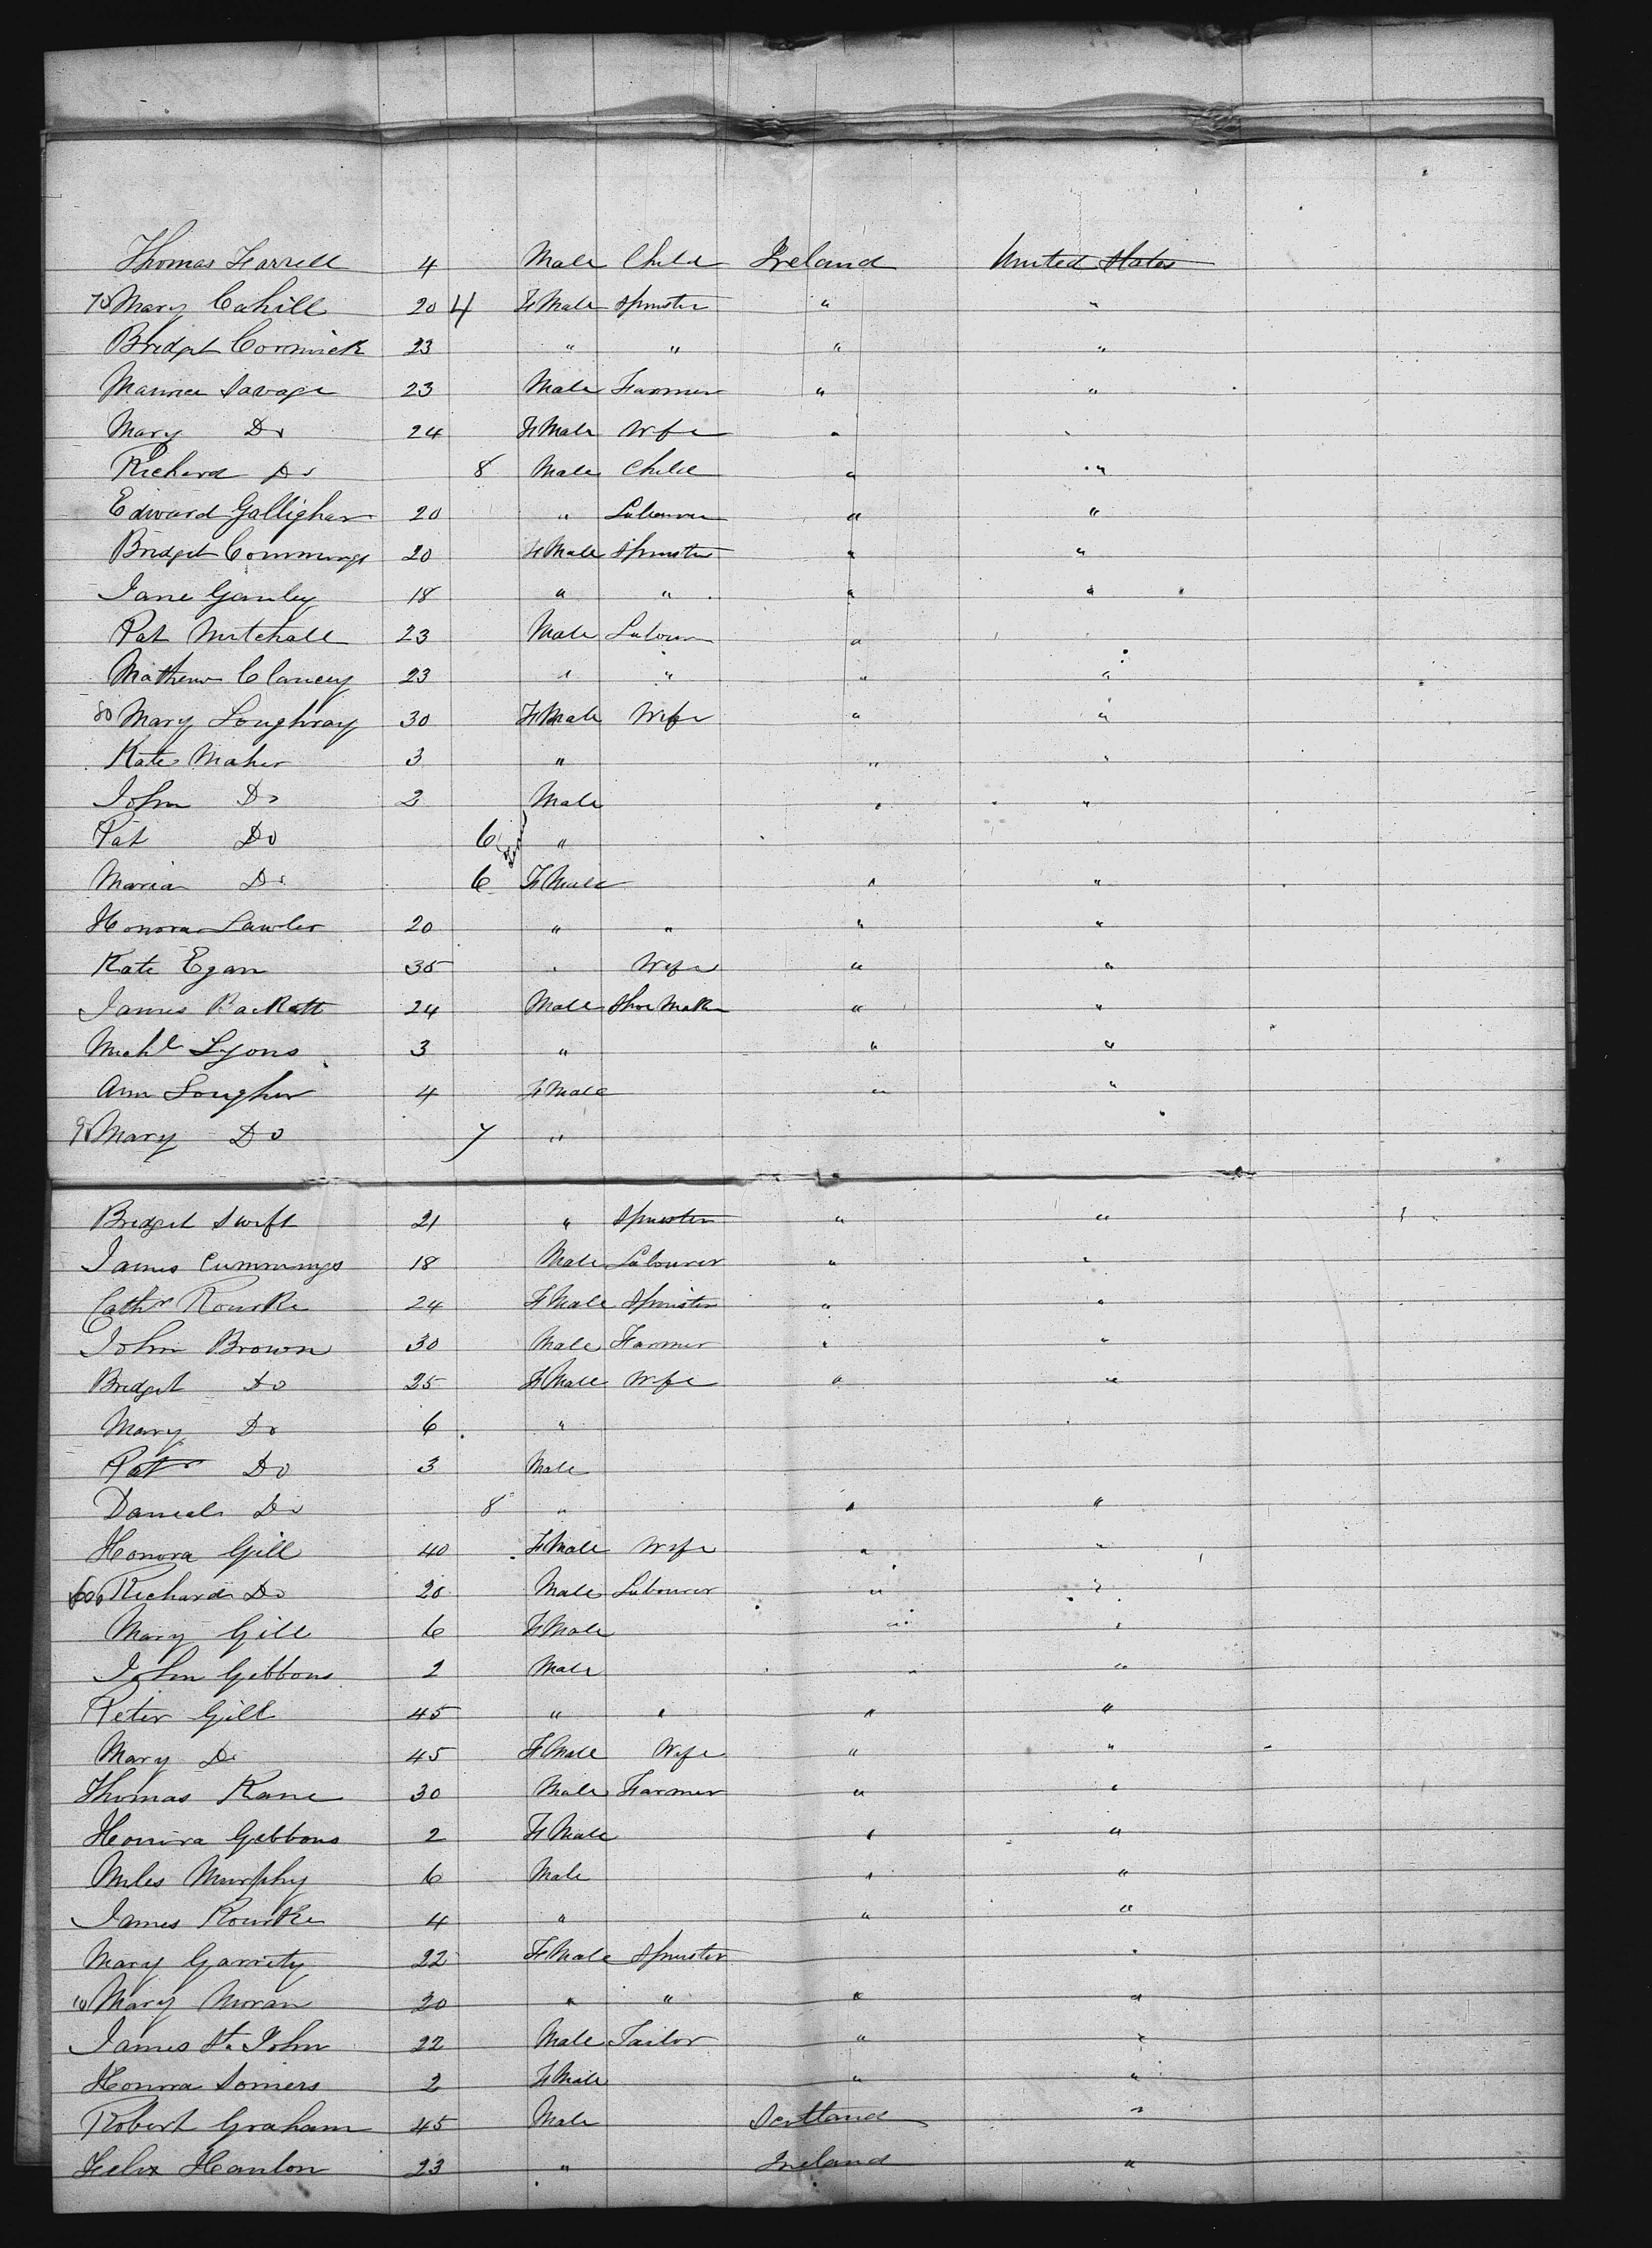 Thomas Farrell 4 Male Child Ireland United States
70 Mary Cahill 20 4 FMale Spinster " "
Bridget Cormick 23 " " " "
Maurice Savage 23 Male Farmer " "
Mary Do 24 FMale Wife " "
Richard Do 8 Male Child " "
Edward Galligher 20 " Labourer " "
Bridget Commings 20 FMale Spinster " "
Jane Ganley 18 " " " "
Pat Mitchall 23 Male Labour " "
Mathew Clancey 23 " " " "
80 Mary Loughray 30 FMale Wife " "
Kate Maher 3 " " "
John Do 2 Male " "
Pat Do 6 "
Maria Do 6 FMale " "
Honora Lawler 20 " " " "
Kate Egan 35 " Wife " "
James Backett 24 Male Shoe Maker " "
Michl Lyons 3 " " "
Ann Lougher 4 FMale " "
90 Mary Do 7 "
Bridget Swift 21 " Spinster " "
James Cummings 18 Male Labourer " "
Cathn Rourke 24 FMale Spinster " "
John Brown 30 Male Farmer " "
Bridget Do 25 FMale Wife " "
Mary Do 6 "
Patr Do 3 Male
Daniel Do 8 " " "
Honora Gill 40 FMale Wife " "
Richard Do 20 Male Labourer " "
Mary Gill 6 FMale " "
John Gibbons 2 Male " "
Peter Gill 45 " " " "
Mary Do 45 FMale Wife " "
Thomas Kane 30 Male Farmer " "
Honora Gibbons 2 FMale " "
Miles Murphy 6 Male " "
James Rourke 4 " " "
Mary Garrity 22 FMale Spinster "
10 Mary Moran 20 " " " "
James St. John 22 Male Tailor " "
Honora Somers 2 FMale " "
Robert Graham 45 Male Scotland "
Felix Hanlon 23 " Ireland "